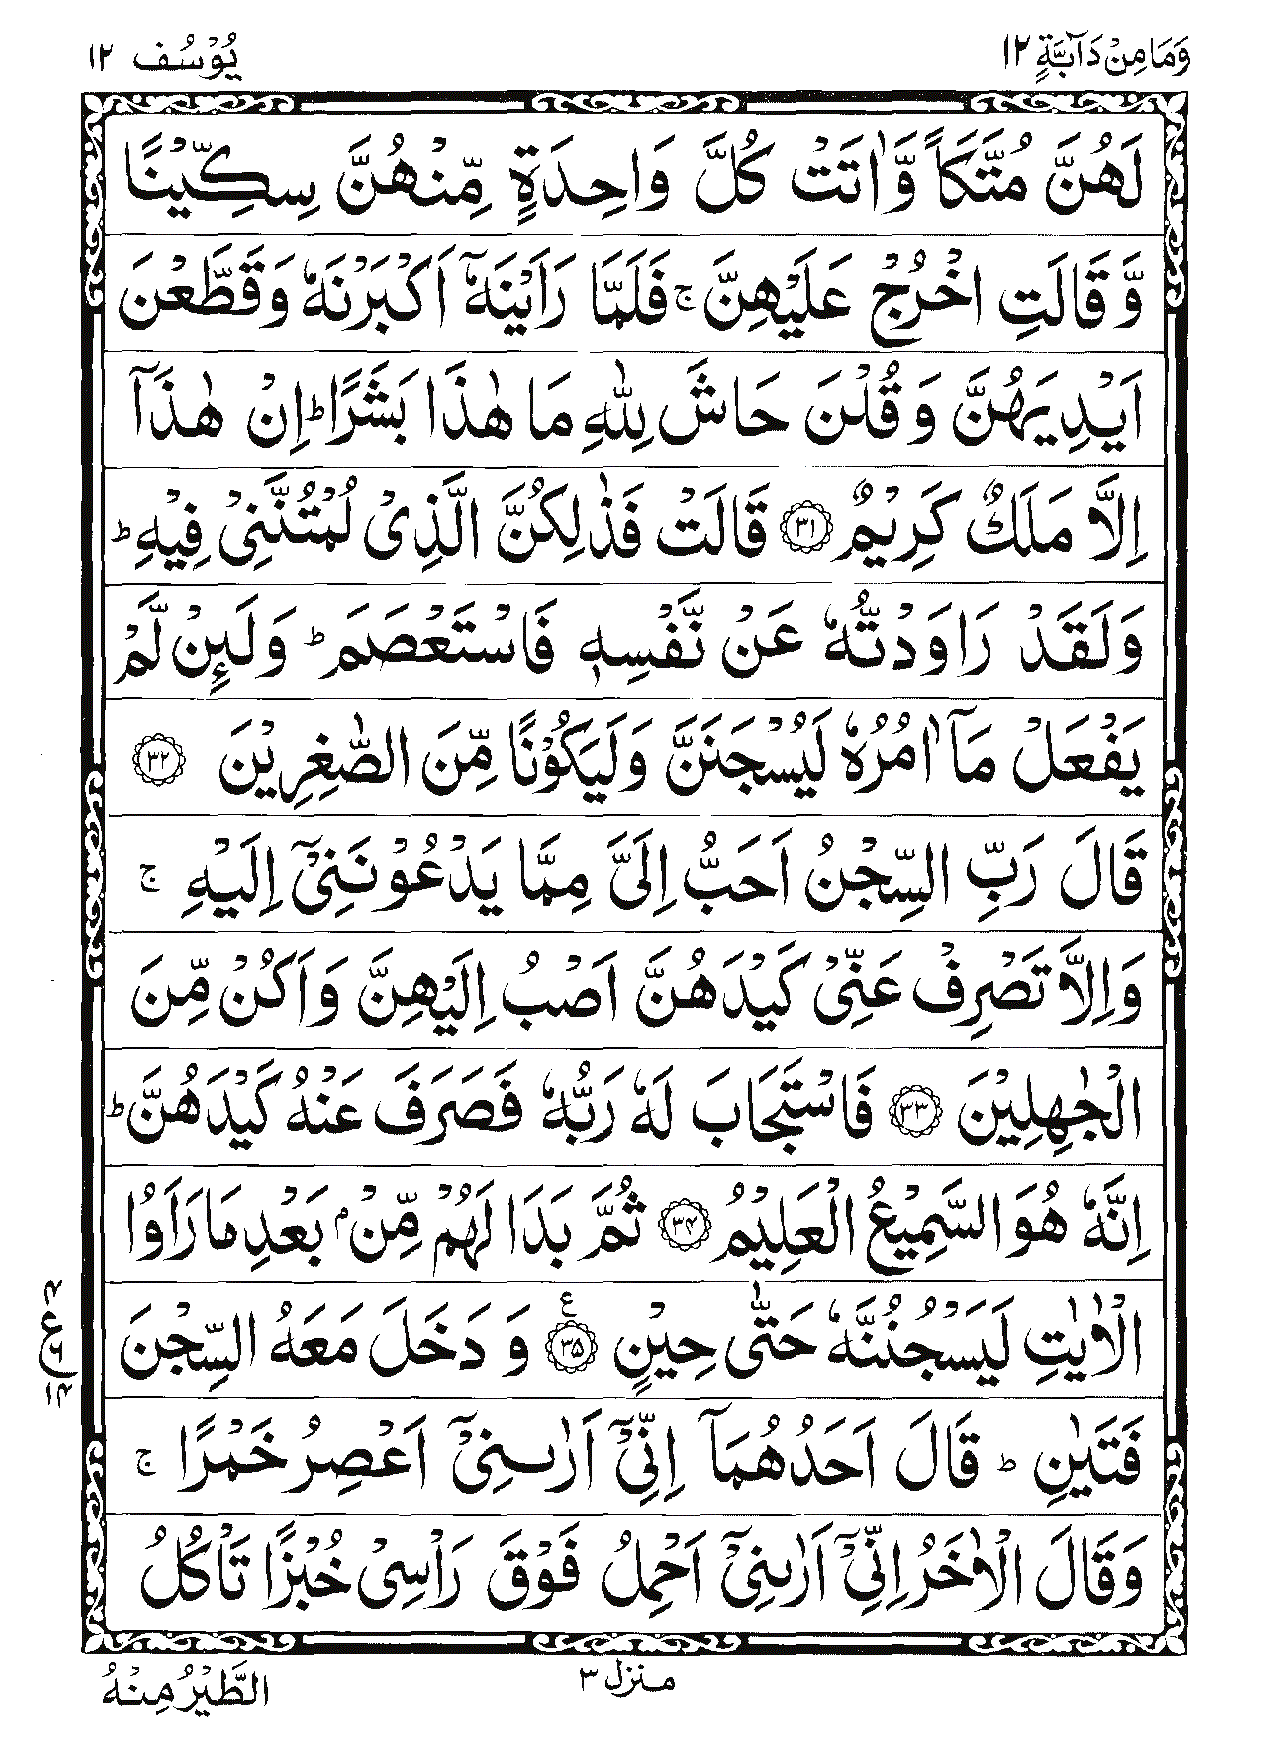 وَمَا مِنْ دَآبَّةٍ ١٢
يُوْسُف ١٢
لَهُنَّ مُتَّكَاً وَّاٰتَتْ كُلَّ وَاحِدَةٍ مِّنْهُنَّ سِكِّيْنًا
وَّقَالَتِ اخْرُجْ عَلَيْهِنَّ ۚ فَلَمَّا رَاَيْنَهٗٓ اَكْبَرْنَهٗ وَقَطَّعْنَ
اَيْدِيَهُنَّ وَقُلْنَ حَاشَ لِلّٰهِ مَا هٰذَا بَشَرًا ؕ اِنْ هٰذَآ
اِلَّا مَلَكٌ كَرِيْمٌ ﴿۳۱﴾ قَالَتْ فَذٰلِكُنَّ الَّذِىْ لُمْتُنَّنِىْ فِيْهِ ؕ
وَلَقَدْ رَاوَدْتُّهٗ عَنْ نَّفْسِهٖ فَاسْتَعْصَمَ ؕ وَلَىِٕنْ لَّمْ
يَفْعَلْ مَآ اٰمُرُهٗ لَيُسْجَنَنَّ وَلَيَكُوْنًا مِّنَ الصّٰغِرِيْنَ ﴿۳۲﴾
قَالَ رَبِّ السِّجْنُ اَحَبُّ اِلَىَّ مِمَّا يَدْعُوْنَنِىْٓ اِلَيْهِ ۚ
وَاِلَّا تَصْرِفْ عَنِّىْ كَيْدَهُنَّ اَصْبُ اِلَيْهِنَّ وَاَكُنْ مِّنَ
الْجٰهِلِيْنَ ﴿۳۳﴾ فَاسْتَجَابَ لَهٗ رَبُّهٗ فَصَرَفَ عَنْهُ كَيْدَهُنَّ ؕ
اِنَّهٗ هُوَ السَّمِيْعُ الْعَلِيْمُ ﴿۳۴﴾ ثُمَّ بَدَا لَهُمْ مِّنْۢ بَعْدِ مَا رَاَوُا
الْاٰيٰتِ لَيَسْجُنُنَّهٗ حَتّٰى حِيْنٍ ﴿۳۵﴾ ع وَدَخَلَ مَعَهُ السِّجْنَ
۴
ع
٦
۱۴
فَتَيٰنِ ؕ قَالَ اَحَدُهُمَآ اِنِّىْٓ اَرٰىنِىْٓ اَعْصِرُ خَمْرًا ۚ
وَقَالَ الْاٰخَرُ اِنِّىْٓ اَرٰىنِىْٓ اَحْمِلُ فَوْقَ رَاْسِىْ خُبْزًا تَاْكُلُ
منزل ٣
الطَّيْرُ مِنْهُ